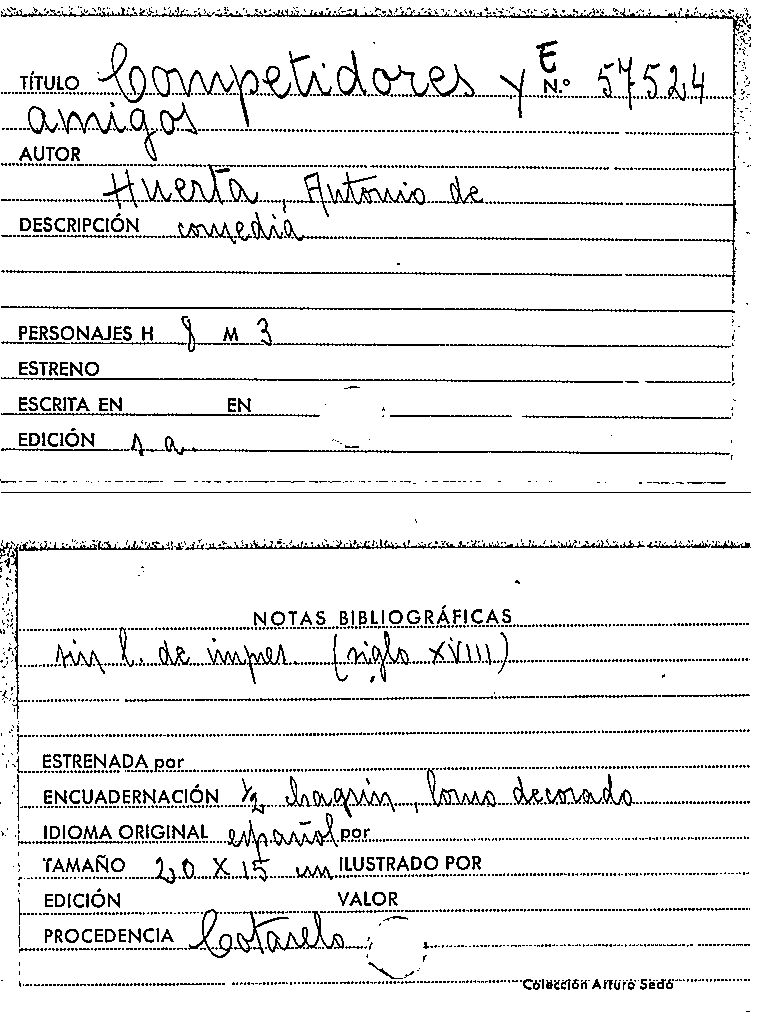 TÍTULO Competidores y E N.º 57524
amigos
AUTOR
Huerta, Antonio de
DESCRIPCIÓN comedia
PERSONAJES H 8 M 3
ESTRENO
ESCRITA EN EN
EDICIÓN s. a.
NOTAS BIBLIOGRÁFICAS
sin l. de impres. (siglo XVIII)
ESTRENADA por
ENCUADERNACIÓN ½ chagrín, lomo decorado
IDIOMA ORIGINAL español por
TAMAÑO 20 X 15 cm ILUSTRADO POR
EDICIÓN VALOR
PROCEDENCIA Cotarelo
Colección Arturo Sedó